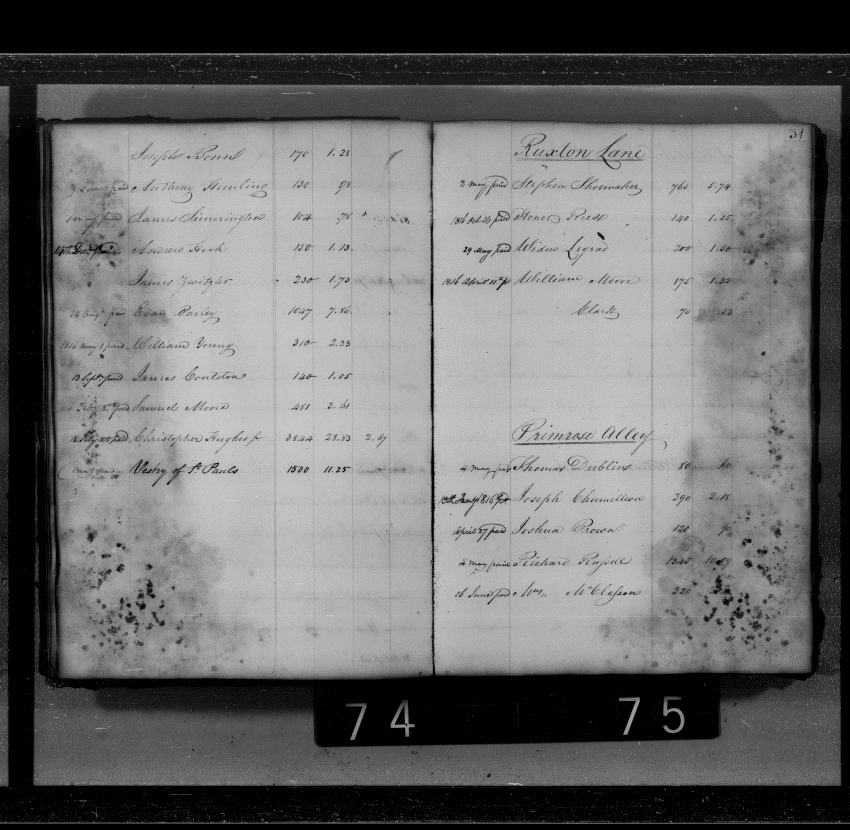 Joseph 170 1.28
paid Anthony Hemling 130 .98
1 may paid James Simerington 104 .78
Andrew Hook 150 1.13
James Zwitzler 230 1.73
paid Evan 1047 7.86
1816 May 1 paid William Young 310 2.33
13 Sept. paid James Coulston 140 1.05
paid Samuel Moore 481 3.61
paid Christopher Hughes Jr 3844 28.83 2.67
Vestry of St Pauls 1500 11.25
31
Ruxton Lane
2 may paid Stephen Shoemaker 765 5.74
1816 Oct 14 paid Honor Reese 140 1.05
29 May paid Widow 200 1.50
1816 April 11th pd William Moore 175 1.32
Clark 70 .53
Primrose Alley
4 may paid Thomas Dublin 80 60
13th Jany 1816 pd Joseph Chamillion 290 2.18
April 27 paid Joshua Brown 120 90
4 may paid Richard Russell 1345
16 June paid Mrs. McClasson 220
74 75